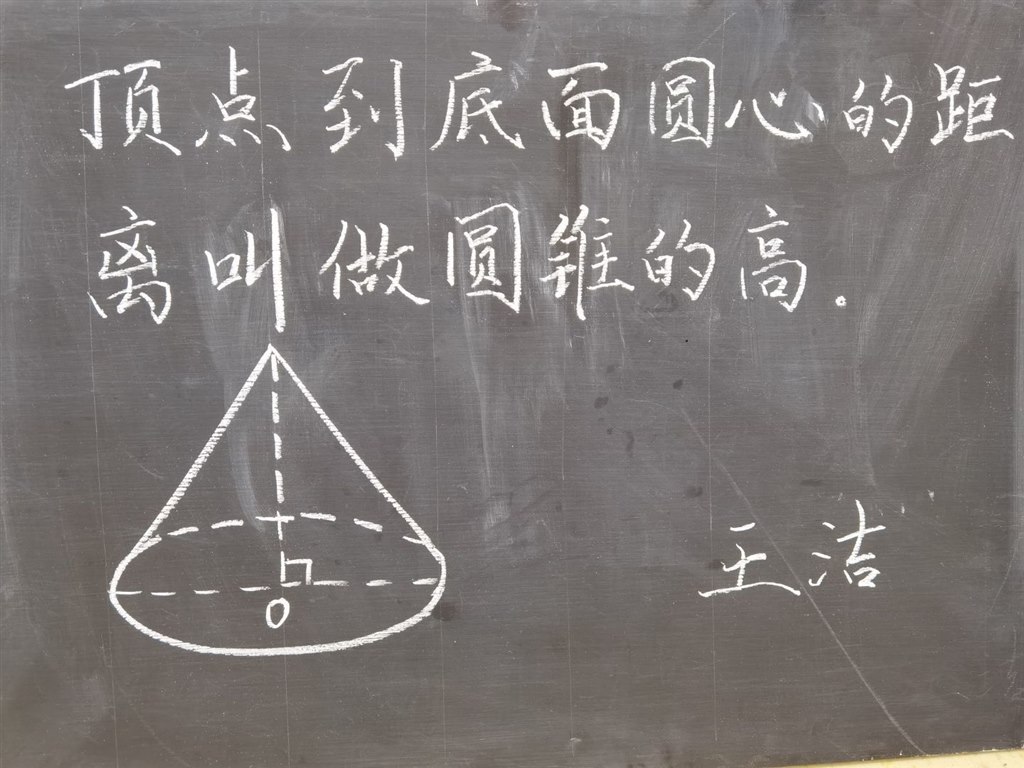 顶点到底面圆心的距
离叫做圆锥的高.
O
王洁